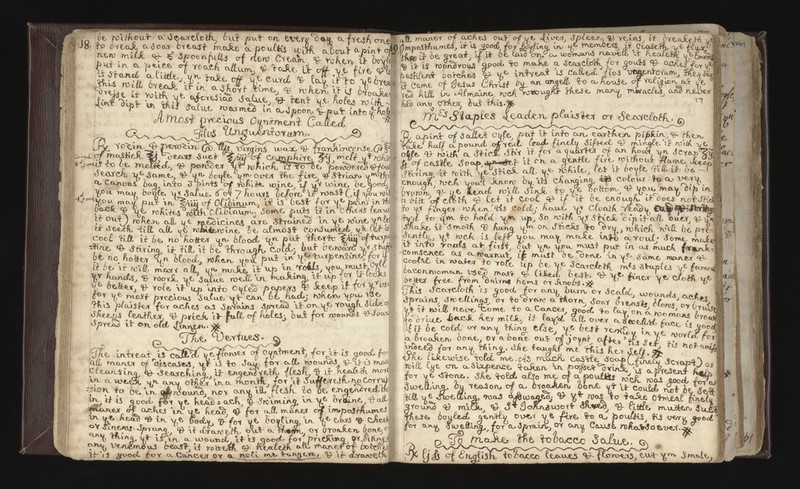 18.
be without a searcloth, but put on every day a fresh one
to break a soar breast make a poultis with about a pint of
new milk & spoonfulls of new Cream, & when it boyls
put in a peice of roach allum, & take it off ye fire & let
it stand a little, yn take off ye curd & lay it to ye breast
this will break it in a short time, & when it is broaken
dresse it with ye salve, & tent ye holes with
lint dipt in this salve warmed in a spoon & put into ye hole
A Most precious Oyntment Called
flos Unguentorum.
Rx rozin & perozin virgins wax & frankincense
of mastick dears suet of camphire melt ym which
is to be melted, & powder ym which is to be powdered & fine
searse ye same, & yn boyle ym over the fire, & strain ym through
a canvas bag into 3 pints of white wine, if yr wine be good,
you may boyle ye salve 6 or 7 hours before it wast (if you will
you may put in of Olibinum, it is best for ye pain in the
back & ye whits with Olibinum, some puts it in others leave
it out) when all ye medicines are strained in ye wine while
it seeth till all ye wine be almost consumed yn let it
cool till it be no hotter yn blood, yn put therto of turpen
tine & stiring it till it be through cold, but beward yt stuff
be no hotter yn blood, when you put in ye turpentine for if
it be it will marr all, yn make it up in rowls, you must oyle
yr hands, & work ye salve well in making it up for it looks
ye better, & role it up in oyled papers & keep it for yr use
for ye most precious salve yt can be had; when you use
this plaister for aches or sprains spread it on ye rough side of
sheeps leather, & prick it full of holes; but for wounds & soars
spread it on old linnen.
The Vertues.
The intreat is call'd ye flower of oyntment, for it is good for
all maner of diseases, yt is to say for all wounds, & it is most
cleansing, & searching, it engendreth flesh, & it healeth more
in a week yn any other in a month, for it suffereth no corrup
tion to be in ye wound, nor any ill flesh to be engendred th
in, it is good for ye head ach & swiming in ye braine, & all
maner of aches in ye head, & for all maner of imposthumes
in ye head & in ye body, & for ye boyling in ye ears & cheeks
or sinews sprung, & it draweth out a thorn, or broaken bone, or
any thing yt is in a wound, it is good for pricking or biting of
any venimous beast, it rotteth & healeth all maner of botches
it is good for a cancer or a noli me tangere, & it draweth
all maner of aches out of ye liver, spleen, & reins, it breaketh ye
imposthumes, it is good for swelling in ye members, it ceaseth ye flux
tho it be great, if it be laid on a womans navell it healeth ye
& it is wondrous good to make a searcloth for gouts & aches for ye
pestilent botches & ye intreat is called flos vngentorum, they say
it came of Jesus Christ by an angell to a house of religion at ye
red hill in Almaine wch wrought these many miracles, and never
had any other but this.
17
Mrs Staples Leaden plaister or Searcloth.
Rx a pint of sallet oyle, put it into an earthen pipkin, & then
take half a pound of red lead finely sifted & mingle it with ye
oyle with a stick stir it for a quarter of an hour, yn scrape
of castle soap set it on a gentle fire without flame keep
stiring it with ye stick all ye while, let it boyle till it be
enough, wch you'l know by its changing its colour to a very
brown, & ye lead will sink to ye bottom, & you may dip in
a bit of cloth & let it cool & if it be enough it does not stick
to yr finger when its cold; have ye cloath ready
ty'd to ym to hold ym up, so with ye stick dip it all over, & yn
shake it smoth & hang ym on sticks to dry, which will be pre
sently, ye wch is left you may make into a roul; some make
it into roals at first, but yn you must put in as much frank
inscence as a warnut, it must be done in ye same maner &
cool'd in water to role up be ye searcloth mrs staples ye famous
baconwoman used most & liked best: & ye finer ye cloth ye
better free from dairns hems or knobs.
This searcloth is good for any burn or scald, wounds, aches,
sprains, swellings, or to draw a thorn, soar breasts, fellons, or bruise
yt it will never come to a cancer, good to lay on a womans breast
to drive back her milk, it lay'd all over a swelled face is good
if it be cold or any thing else, ye best remidy in ye world for
a broaken bone, or a bone out of joynt after tis set, tis not amiss
vsed for any thing. she taught me this her self.
She likewise told me as much castle soap (finely scrap't) as
will lye on a sixpence taken in posset drink, is a present help
for ye stone. She told also me of a poultis wch was good for a
swelling, by reason of a broaken bone yt it could not be set
till ye swelling was aswaged, & yt was to take otmeal small
ground, & milk, & St Johnswort shred, & a little mutton suet
these boyled gently over ye fire to a poultis, tis very good
for any swelling, for a sprain, or any Cause whatsoever.
To make the tobacco Salve.
Rx of English tobacco leaves & flowers, cut ym small,